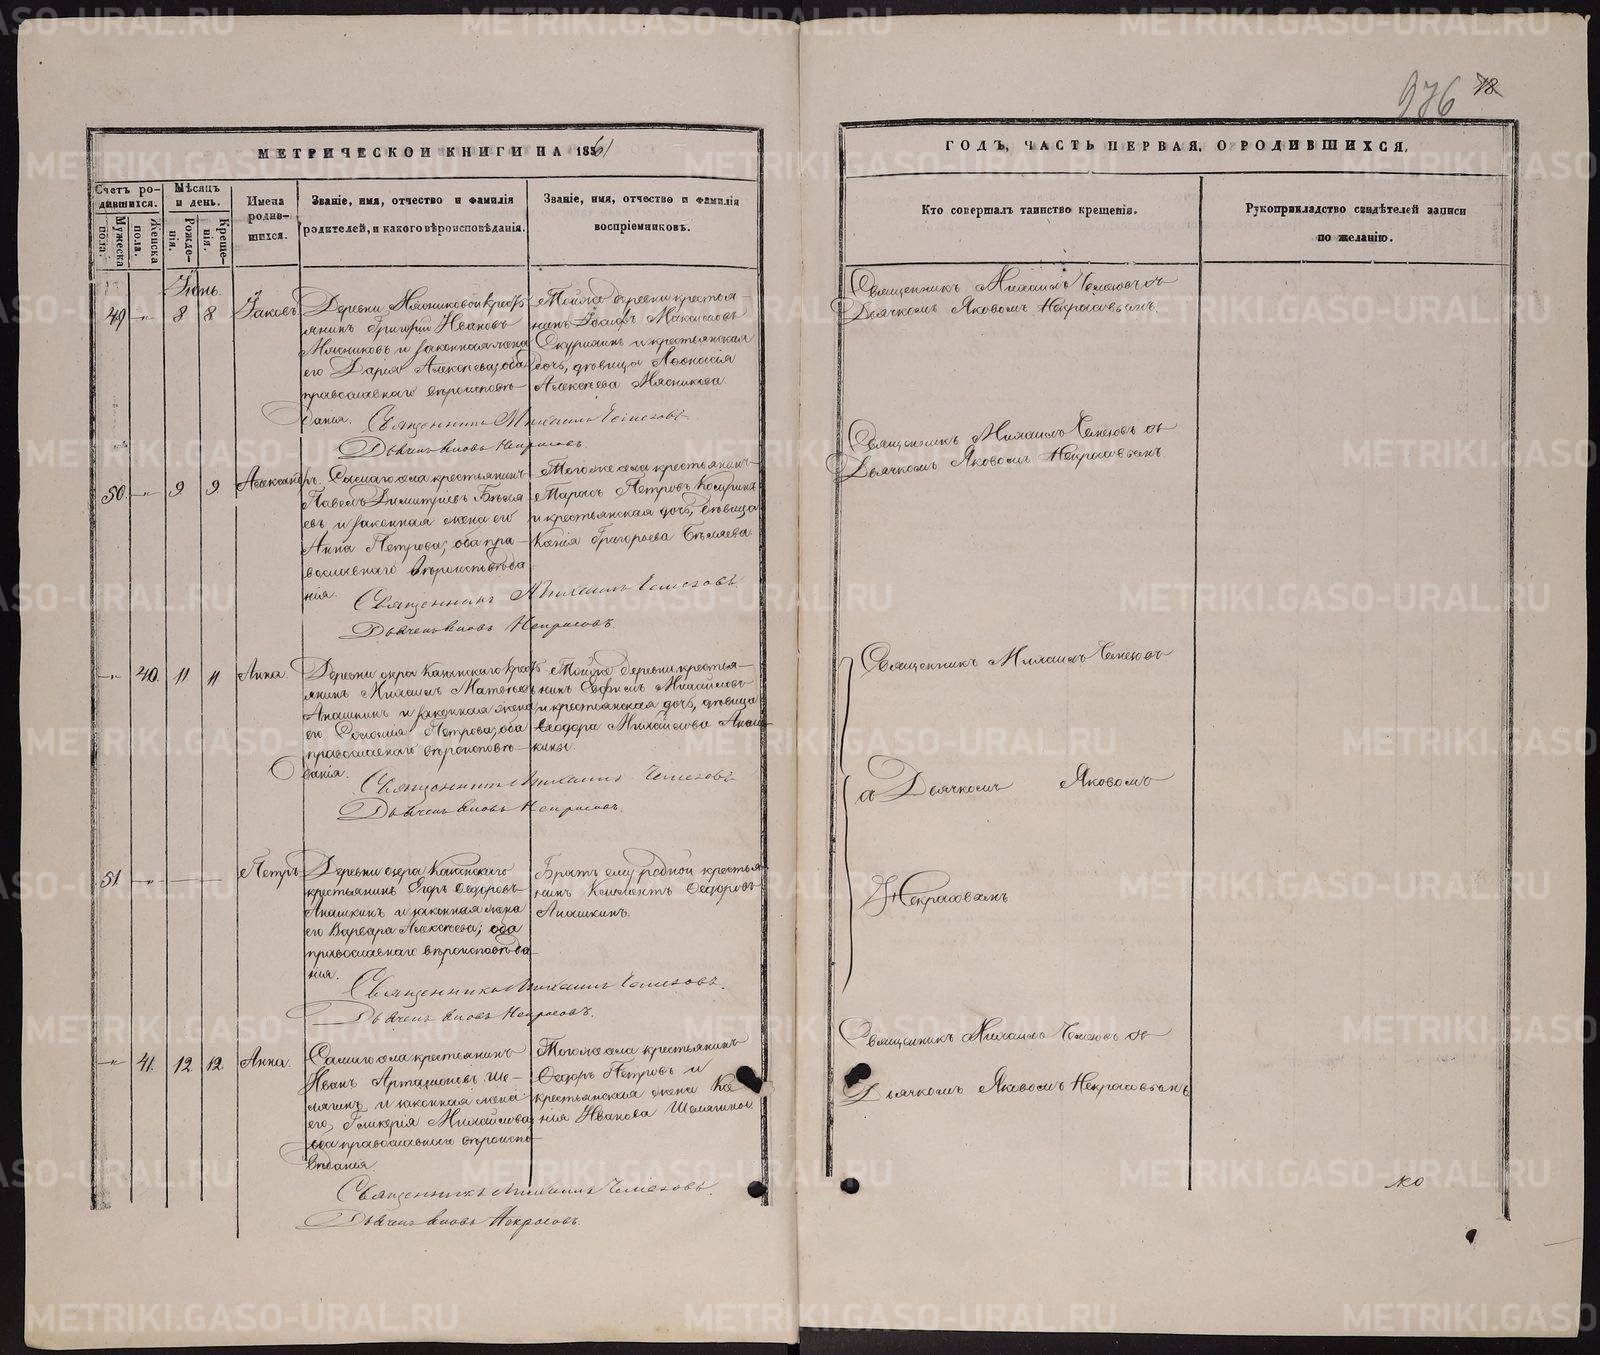 976 78
МЕТРИЧЕСКОЙ КНИГИ НА 1861
ГОДЪ, ЧАСТЬ ПЕРВАЯ, О РОДИВШИХСЯ.
Счетъ родившихся.
Мужеска пола.
Женска пола.
Мѣсяцъ и день.
Рожденія.
Крещенія.
Имена родившихся.
Званіе, имя, отчество и фамилія
родителей, и какого вѣроисповѣданія.
Званіе, имя, отчество и фамилія
воспріемниковъ.
Кто совершалъ таинство крещенія.
Рукоприкладство свидѣтелей записи
по желанію.
Іюнь.
49 8 8 Іаковъ
Деревни Мясниковой крестьянинъ Григорій Ивановъ
Мясниковъ и законная жена
его Дарія Алексѣева; оба
православнаго вѣроисповѣ-
данія.
Тойже деревни крестья-
нинъ Іосифъ Максимовъ
и крестьянская
дочь, дѣвица
Алексѣева Мясникова.
Священникъ Михаилъ
Дьячекъ Яковъ Некрасовъ.
Священникъ Михаилъ съ
Дьячкомъ Яковомъ Некрасовымъ.
50. 9 9 Александръ.
Самаго села крестьянинъ
Павелъ Димитріевъ Бѣляевъ и законная жена его
Анна Петрова; оба пра-
вославнаго вѣроисповѣда-
нія.
Тогоже села крестьянинъ
Петровъ
и крестьянская дочь, дѣвица
Ксенія Григорьева Бѣляева.
Священникъ Михаилъ
Дьячекъ Яковъ Некрасовъ.
Священникъ Михаилъ съ
Дьячкомъ Яковомъ Некрасовымъ
40. 11 11 Анна.
Деревни озера Каганскаго кресть-
янинъ Михаилъ Матвѣевъ
Анашкинъ и законная жена
его Соломія Петрова; оба
православнаго вѣроисповѣ-
данія.
Тойже деревни крестья-
нинъ Ефимъ Михайловъ
и крестьянская дочь, дѣвица
Ѳеодора Михайлова Анаш-
кины.
Священникъ Михаилъ
Дьячекъ Яковъ Некрасовъ.
Священникъ Михаилъ
съ Дьячкомъ Яковомъ
Некрасовымъ
51 Петръ
Деревни озера Каганскаго
крестьянинъ Егоръ Ѳедоровъ
Анашкинъ и законная жена
его Варвара Алексѣева; оба
православнаго вѣроисповѣда-
нія.
Братъ ему родной крестья-
нинъ Климентъ Ѳедоровъ
Анашкинъ.
Священникъ Михаилъ
Дьячекъ Яковъ Некрасовъ.
41. 12 12 Анна.
Самаго села крестьянинъ
Иванъ Артамоновъ Ше-
мягинъ и законная жена
его, Гликерія Михайлова
оба православнаго вѣроиспо-
вѣданія.
Тогоже села крестьянинъ
Ѳедоръ Петровъ и
крестьянская жена Ксе-
нія Иванова Шемягины.
Священникъ Михаилъ
Дьячекъ Яковъ Некрасовъ.
Священникъ Михаилъ съ
Дьячкомъ Яковомъ Некрасовымъ
METRIKI.GASO-URAL.RU